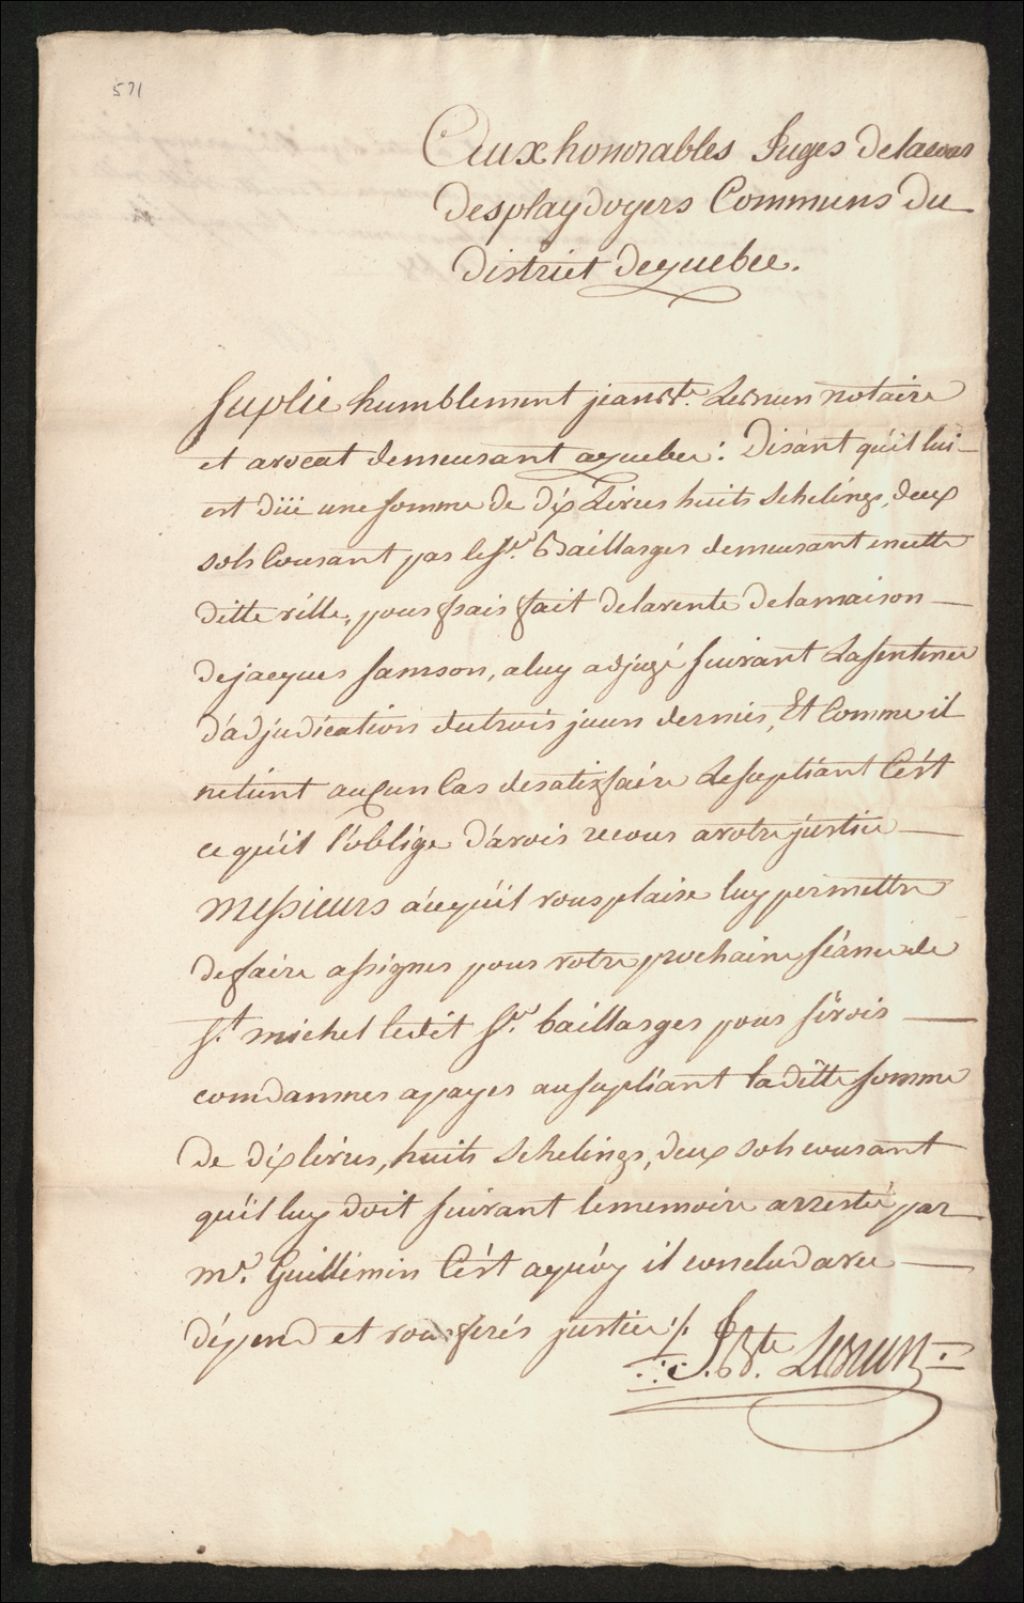 571
Aux honorables Juges De la cour
Des playdoyers Communs Du
District De quebec.
Suplie humblement jean Bte. Lebrun notaire
et avocat demeurant a quebec : Disant qu'il lui
est düe une somme de dix Livres huits Schelings, deux
sols Courant par le Sr. Baillarger demeurant en cette
Ditte ville, pour frais fait De la vente De la maison
De jacques Samson, a luy adjugé suivant La sentence
D'adjudication du trois juun dernier, Et Comme il
ne tient aucun Cas de satisfaire Le supliant C'est
ce qu'il l'oblige D'avoir recour a votre justice
Messieurs a'ce qu'il vous plaise luy permettre
De faire assigner pour votre prochaine séance de
St. michel le dit Sr. baillarger pour s'e voir
comdamner a payer au supliant la ditte somme
De dix livres, huits Schelings, deux sols courant
qu'il luy doit suivant le memoire arresté par
Mr. Guillimin C'est a quoy il conclud avec
dépend et vous ferés justice ./.
J. Bte. Lebrun